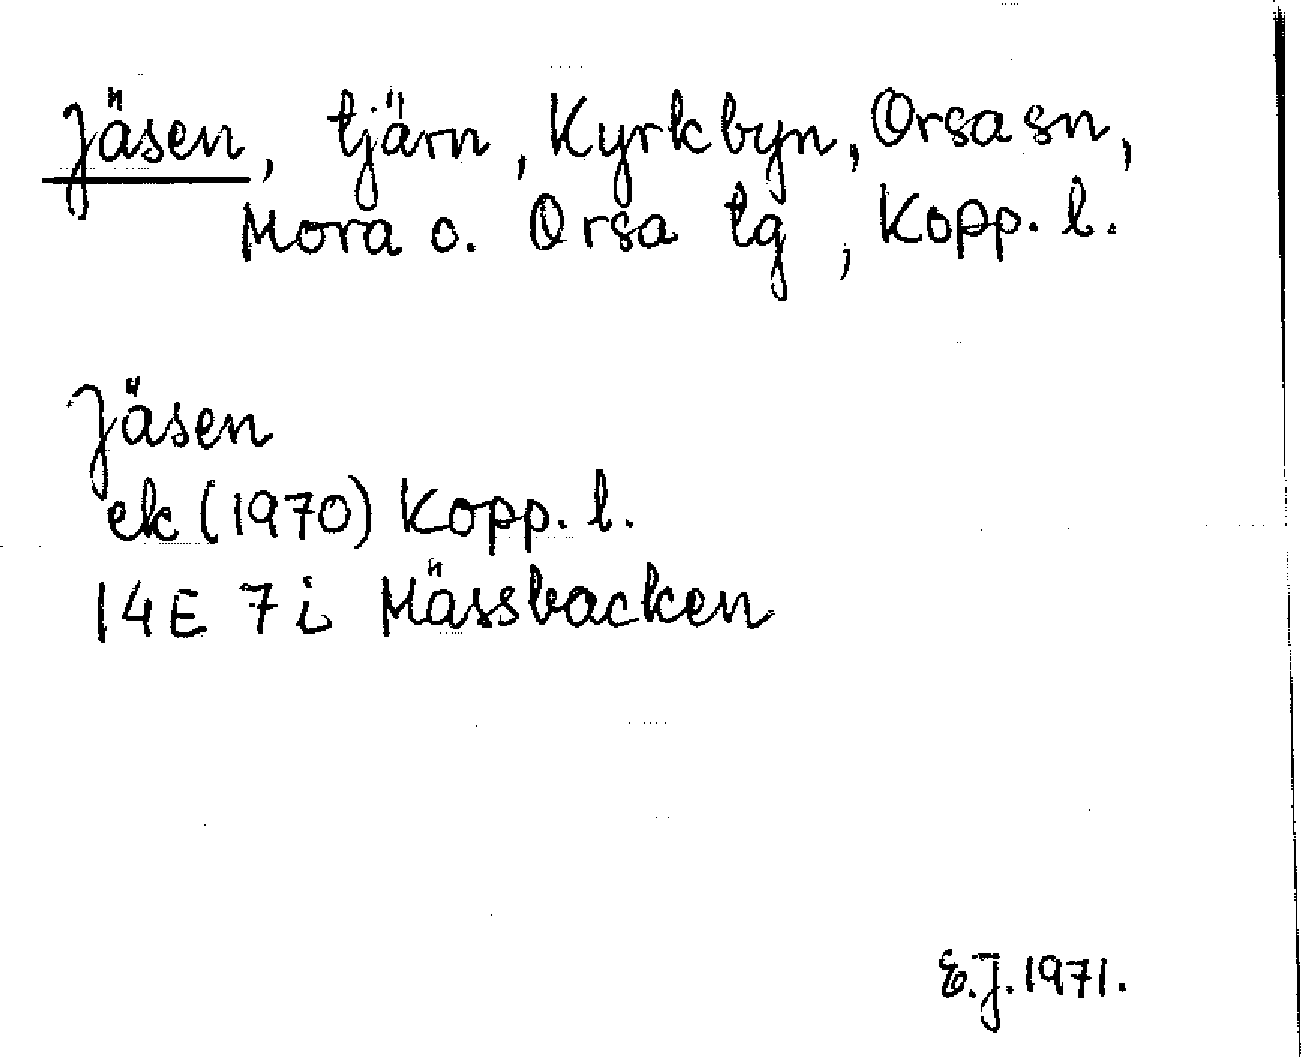 Jäsen, tjärn, Kyrkbyn, Orsa sn,
Mora o. Orsa tg, Kopp. l.
Jäsen
ek (1970) Kopp. l.
14E 7i Mässbacken
E.J. 1971.